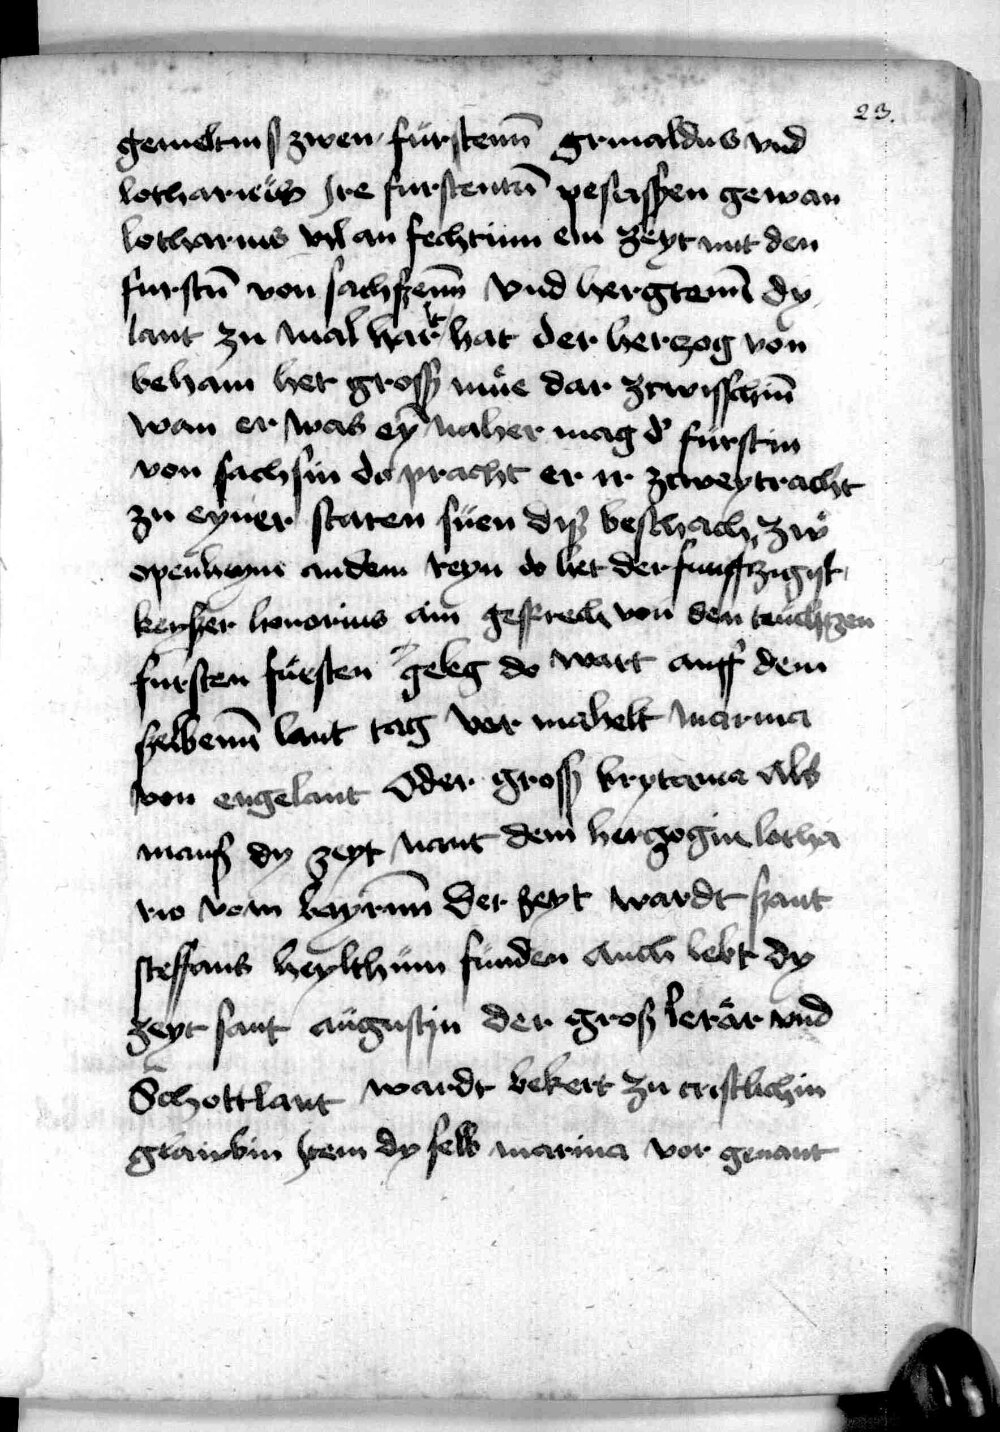 23.
gemeltniß zwen fürstenn̄ grmaldus vnd
lotharieüs Jre furstentū pesassen gewan
lotharius vil an fechtinn ein zeyt mit den
furstn̄ von sachsenn̄ vnd hergtenn̄ dy
lant zu mal hart hat der herzog von
beham het gross müe dar zcwisschin̄
wan er was ey̅ naher mag d' fürstin
von sachsin do pracht er ir zcweytracht
zu eyner staten süen diß beschach zw
openheym an dem reyn do het der funffzigist
keyser honorius ain gesprech von den teuchtzen
fursten fürsten geleg do wart auff dem
selbenn̄ lant tag ver mahelt marina
von engelant Oder gross brytania Als
mans dy zeyt nant dem herzogin lotha
rio vom bayrnn̄ Der zeyt wardt sant
steffans heylthum funden Auch lebt dy
zeyt sant augustin der groß lerär vnd
Schottlant wardt bekert zu cristlichin
glawbin Jtem dy selb marina vor genant